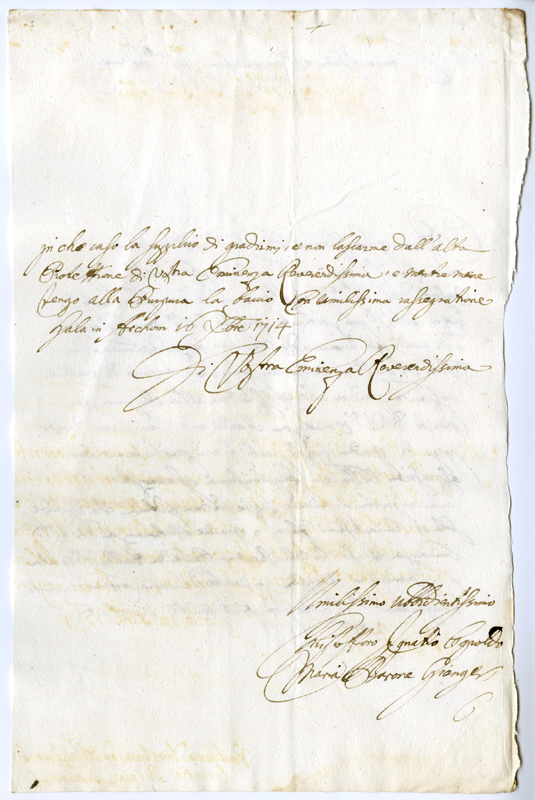 in che caso la supplico di gradirmi, e non lasciarme dall'alta
Protettione di Vostra Eminenza Reverendissima, e mentre mene
vengo alla Purpura la bacio con umilissima rassegnatione
Sala in 16 Xbre 1714
Di Vostra Eminenza Reverendissima
Umilissimo Ubbidientissimo
Leopoldo
Maria Barone